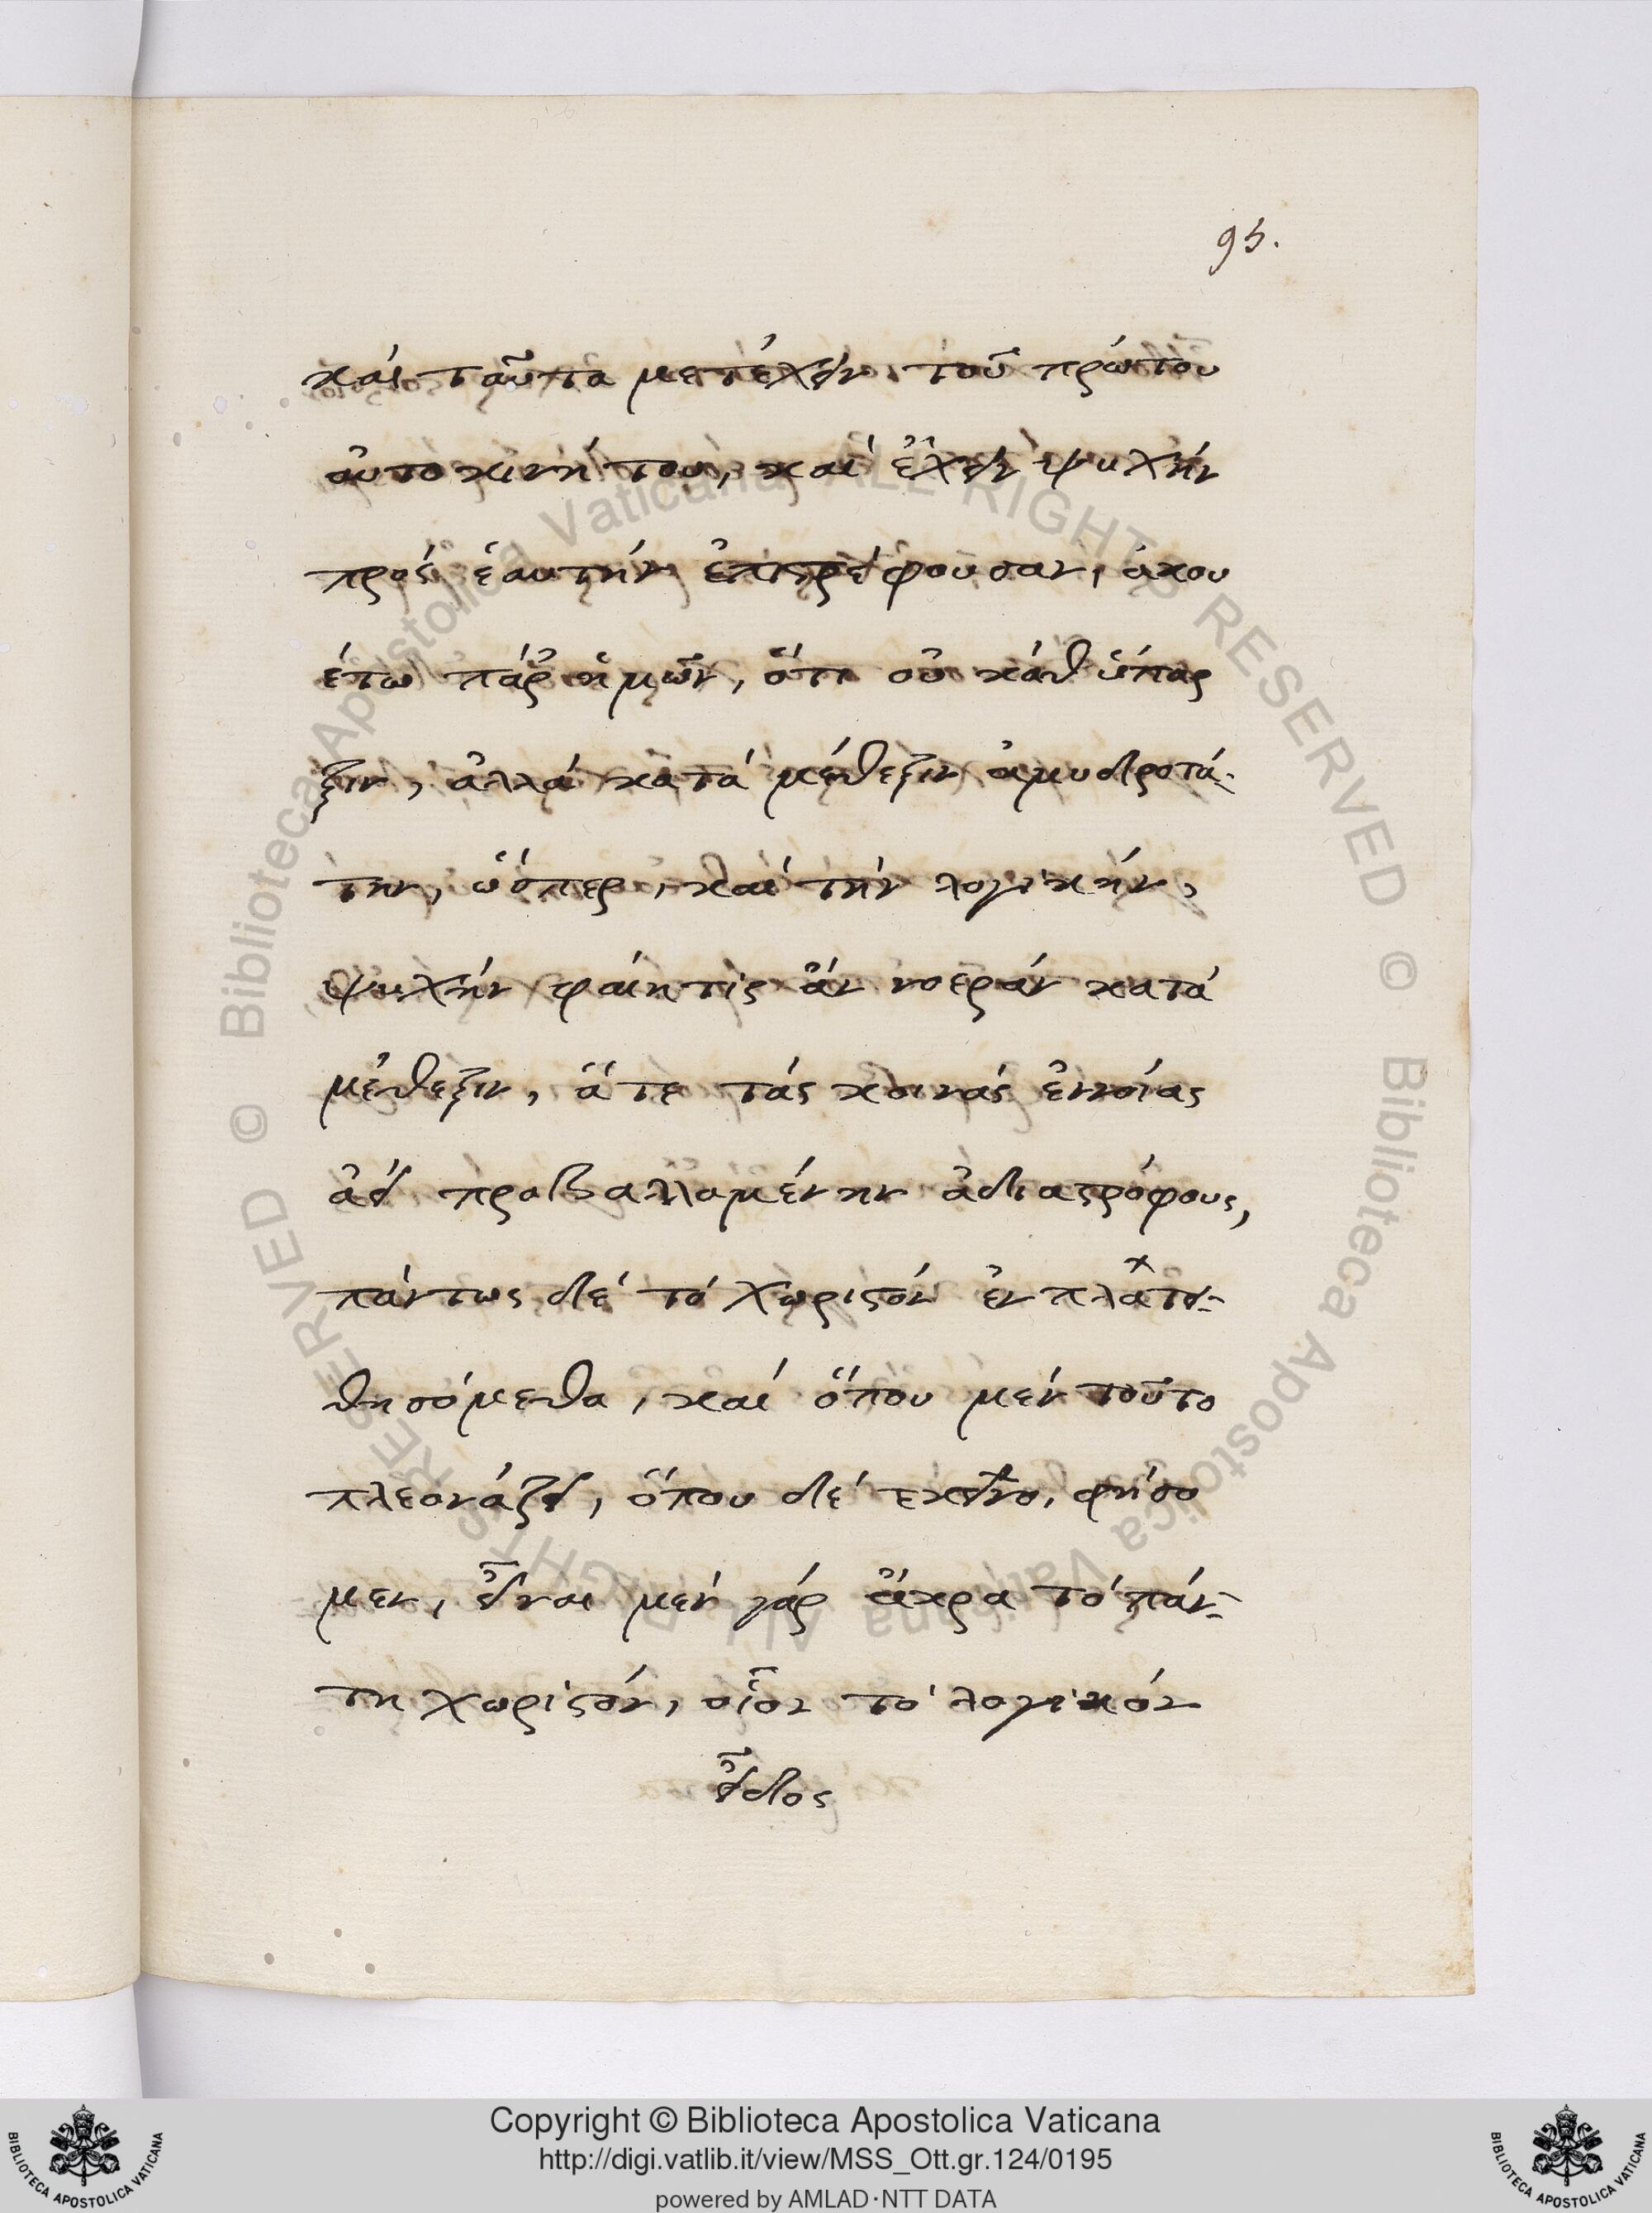 95.
καί ταῦτα μετέχειν τοῦ πρώτου
αὐτοκινήτου, καί ἔχειν ψυχήν
πρός ἑαυτήν ἐπιστρέφουσαν, ἀκου
έτω πάρ ἡμῶν, ὅτι οὐ κάθ ὕπαρ
ξιν, ἀλλά κατά μέθεξιν ἀμυδροτά-
την, ὥσπερ, καί τήν λογικήν,
ψυχήν φαίη τίς ἄν νοεράν κατά
μέθεξιν, ἅτε τάς κοινάς ἐννοίας
ἀεί προβαλλομένην ἀδιαστρόφους,
πάντως δέ τό χωριστόν ἐν πλάτει-
θησόμεθα, καί ὅπου μέν τοῦτο
πλεονάζει, ὅπου δέ εκεῖνο, φήσο
μεν, εἶναι μέν γάρ ἄκρα τό πάν-
τη χωριστόν, οἷον τό λογικόν
εἶδος
Copyright © Biblioteca Apostolica Vaticana
http://digi.vatlib.it/view/MSS_Ott.gr.124/0195
powered by AMLAD·NTT DATA
BIBLIOTECA APOSTOLICA VATICANA
BIBLIOTECA APOSTOLICA VATICANA
© Biblioteca Apostolica Vaticana ALL RIGHTS RESERVED
© Biblioteca Apostolica Vaticana ALL RIGHTS RESERVED